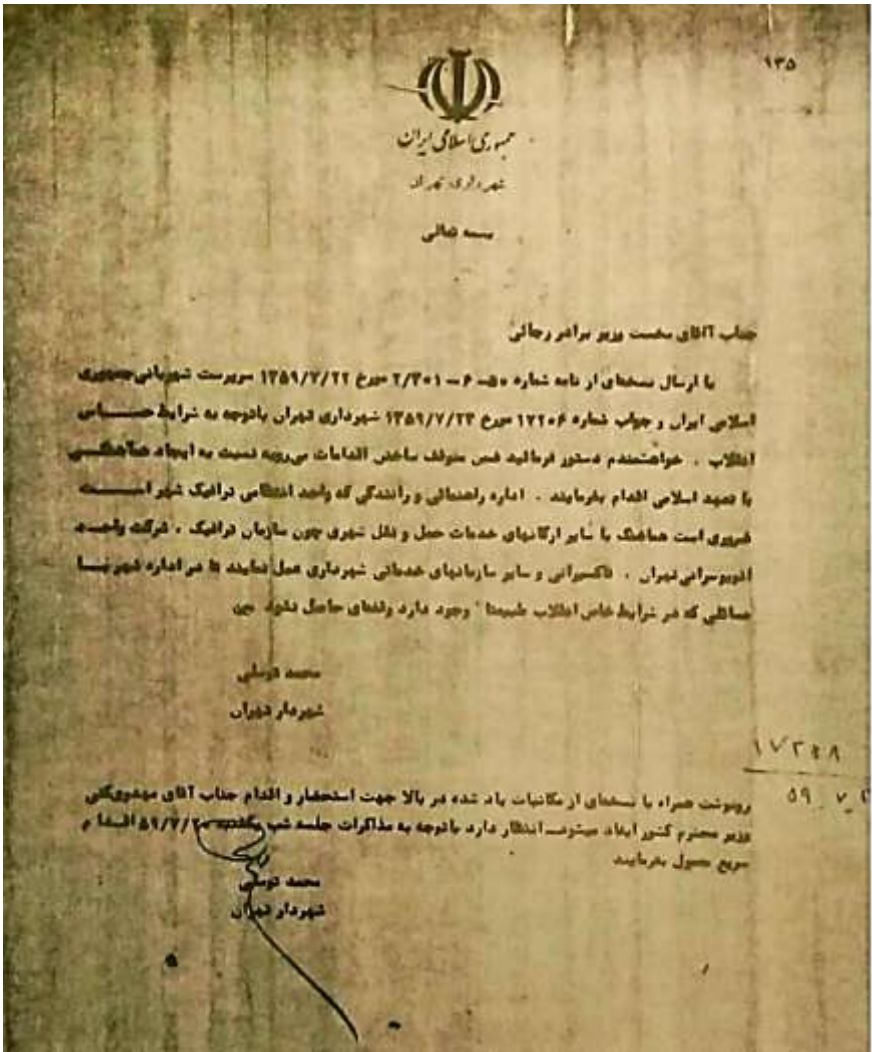 ۱۳۵
جمهوری اسلامی ایران
شهرداری تهران
بسمه تعالی
جناب آقای نخست وزیر برادر رجائی
با ارسال نسخه‌ای از نامه شماره ۵۰ – ۶ – ۲/۳۰۱ مورخ ۱۳۵۹/۷/۲۲ سرپرست شهربانی جمهوری
اسلامی ایران و جواب شماره ۱۷۲۰۶ مورخ ۱۳۵۹/۷/۲۳ شهرداری تهران باتوجه به شرایط حساس
انقلاب . خواهشمندم دستور فرمائید ضمن متوقف ساختن اقدامات بی‌رویه نسبت به ایجاد هماهنگی
با تعهد اسلامی اقدام بفرمایند . اداره راهنمائی و رانندگی که واحد انتظامی ترافیک شهر است
ضروری است هماهنگ با سایر ارگانهای خدمات حمل و نقل شهری چون سازمان ترافیک ، شرکت واحد
اتوبوسرانی تهران . تاکسیرانی و سایر سازمانهای خدماتی شهرداری عمل نمایند تا در اداره شهر با
مسائلی که در شرایط خاص انقلاب طبیعتا" وجود دارد وقفه‌ای حاصل نشود
محمد توسلی
شهردار تهران
۵۹
رونوشت همراه با نسخه‌ای از مکاتبات یاد شده در بالا جهت استحضار و اقدام جناب آقای مهدوی‌کنی
وزیر محترم کشور ایفاد میشود – انتظار دارد باتوجه به مذاکرات جلسه شب یکشنبه ۵۹/۷/۲۰ اقدام
سریع معمول بفرمایند
محمد توسلی
شهردار تهران